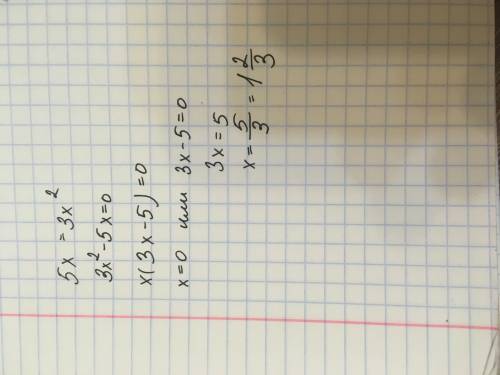 5x = 3x²
3x² - 5x = 0
x(3x - 5) = 0
x = 0 или 3x - 5 = 0
3x = 5
x = 5/3 = 1 2/3